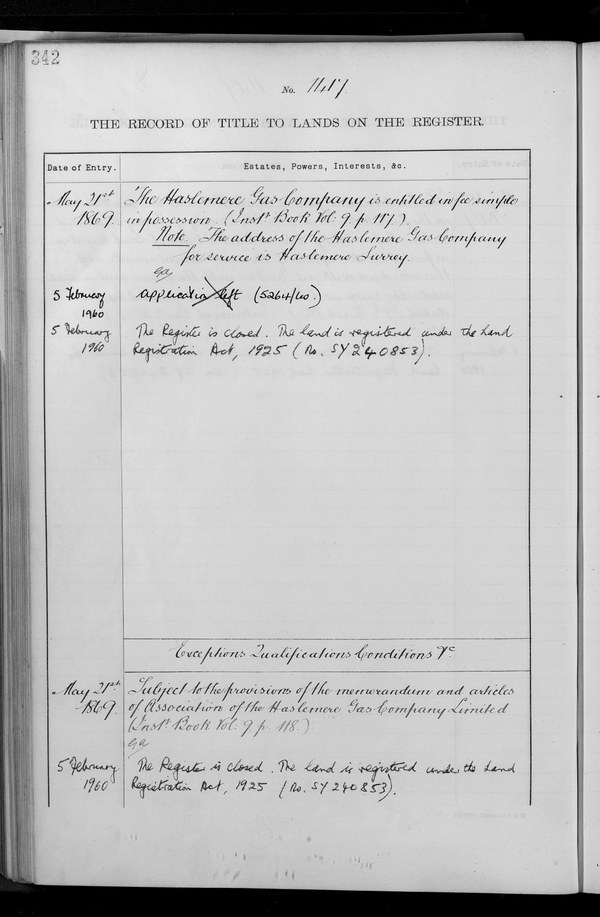 342
No. 1417
THE RECORD OF TITLE TO LANDS ON THE REGISTER.
Date of Entry.
Estates, Powers, Interests, &c.
May 21st 1869.
The Haslemere Gas Company is entitled in fee simple
in possession. (Inst. Book Vol. 9 p. 117.)
Note. The address of the Haslemere Gas Company
for service is Haslemere Surrey.
5 February 1960
Application left (5264/60.)
5 February 1960
The Register is closed. The land is registered under the Land
Registration Act, 1925 (No. SY 240853).
Exceptions Qualifications Conditions &c
May 21st 1869.
Subject to the provisions of the memorandum and articles
of Association of the Haslemere Gas Company Limited
(Inst. Book Vol. 9 p. 118.)
5 February 1960
The Register is closed. The land is registered under the Land
Registration Act, 1925 (No. SY 240853).